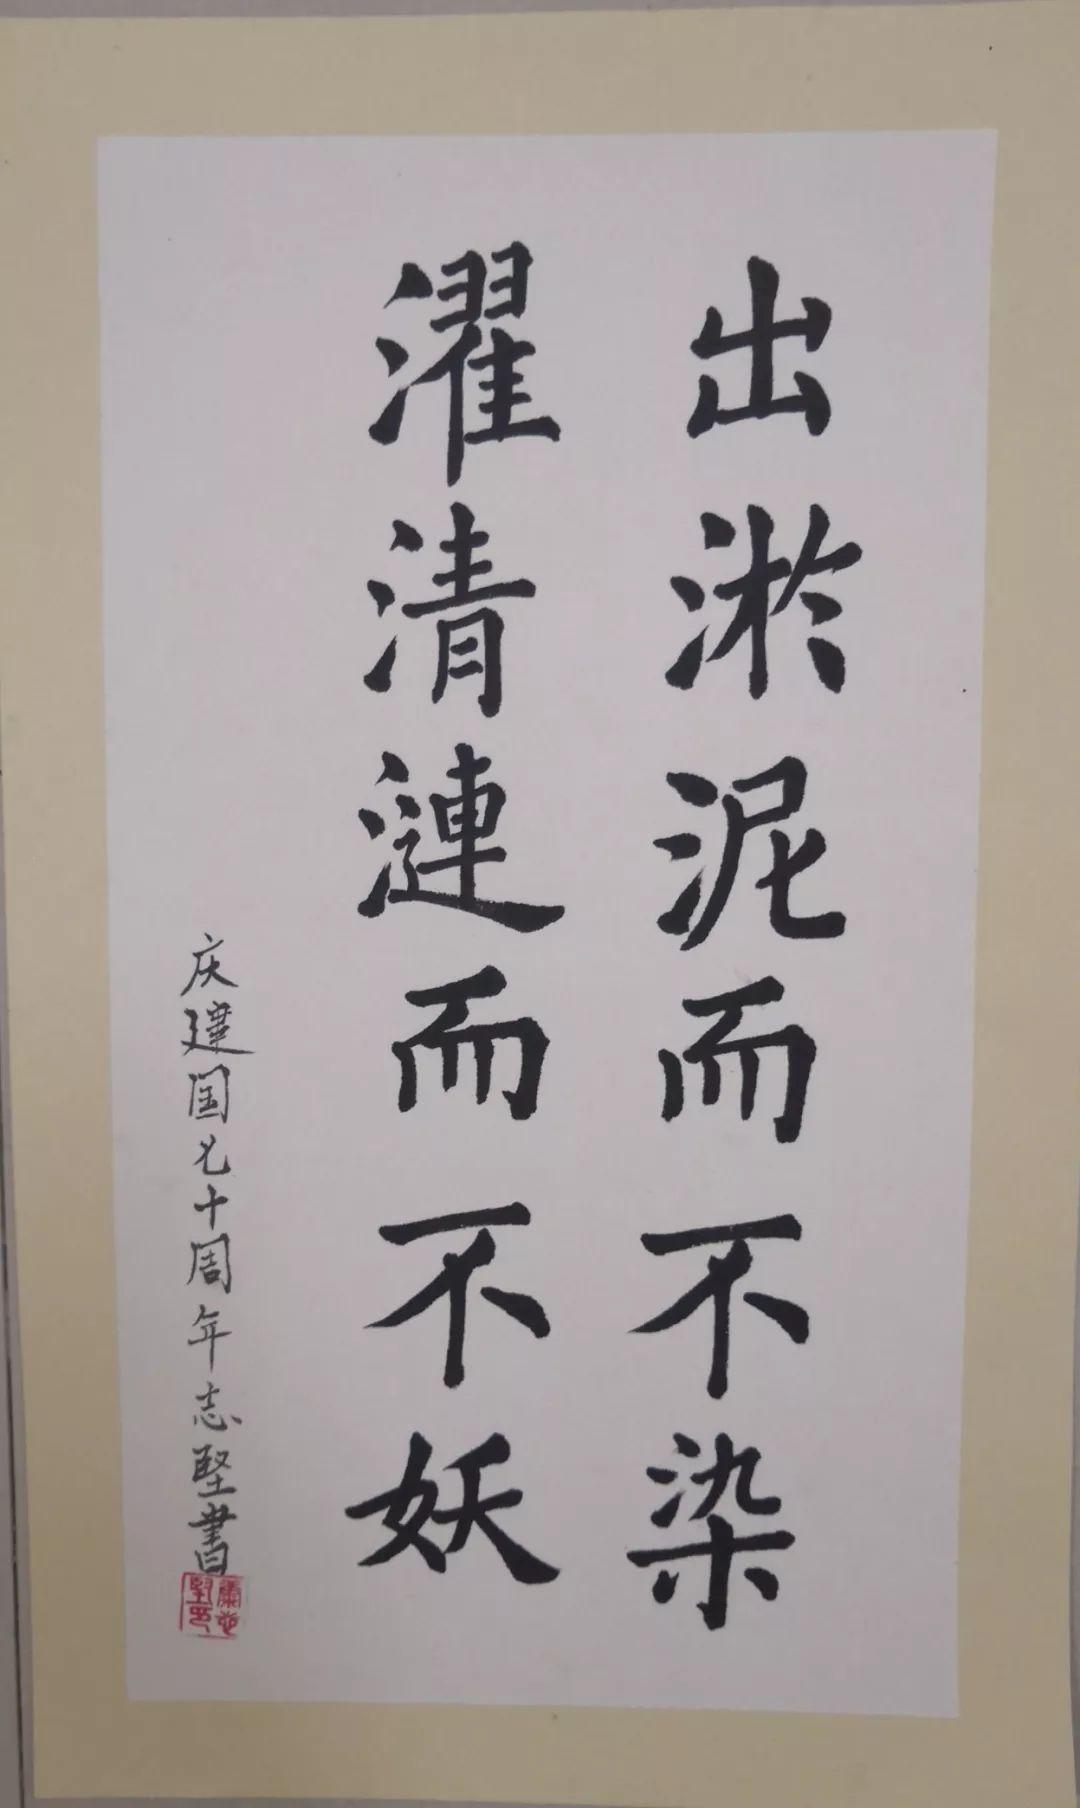 出淤泥而不染
濯清漣而不妖
庆建国七十周年志坚書